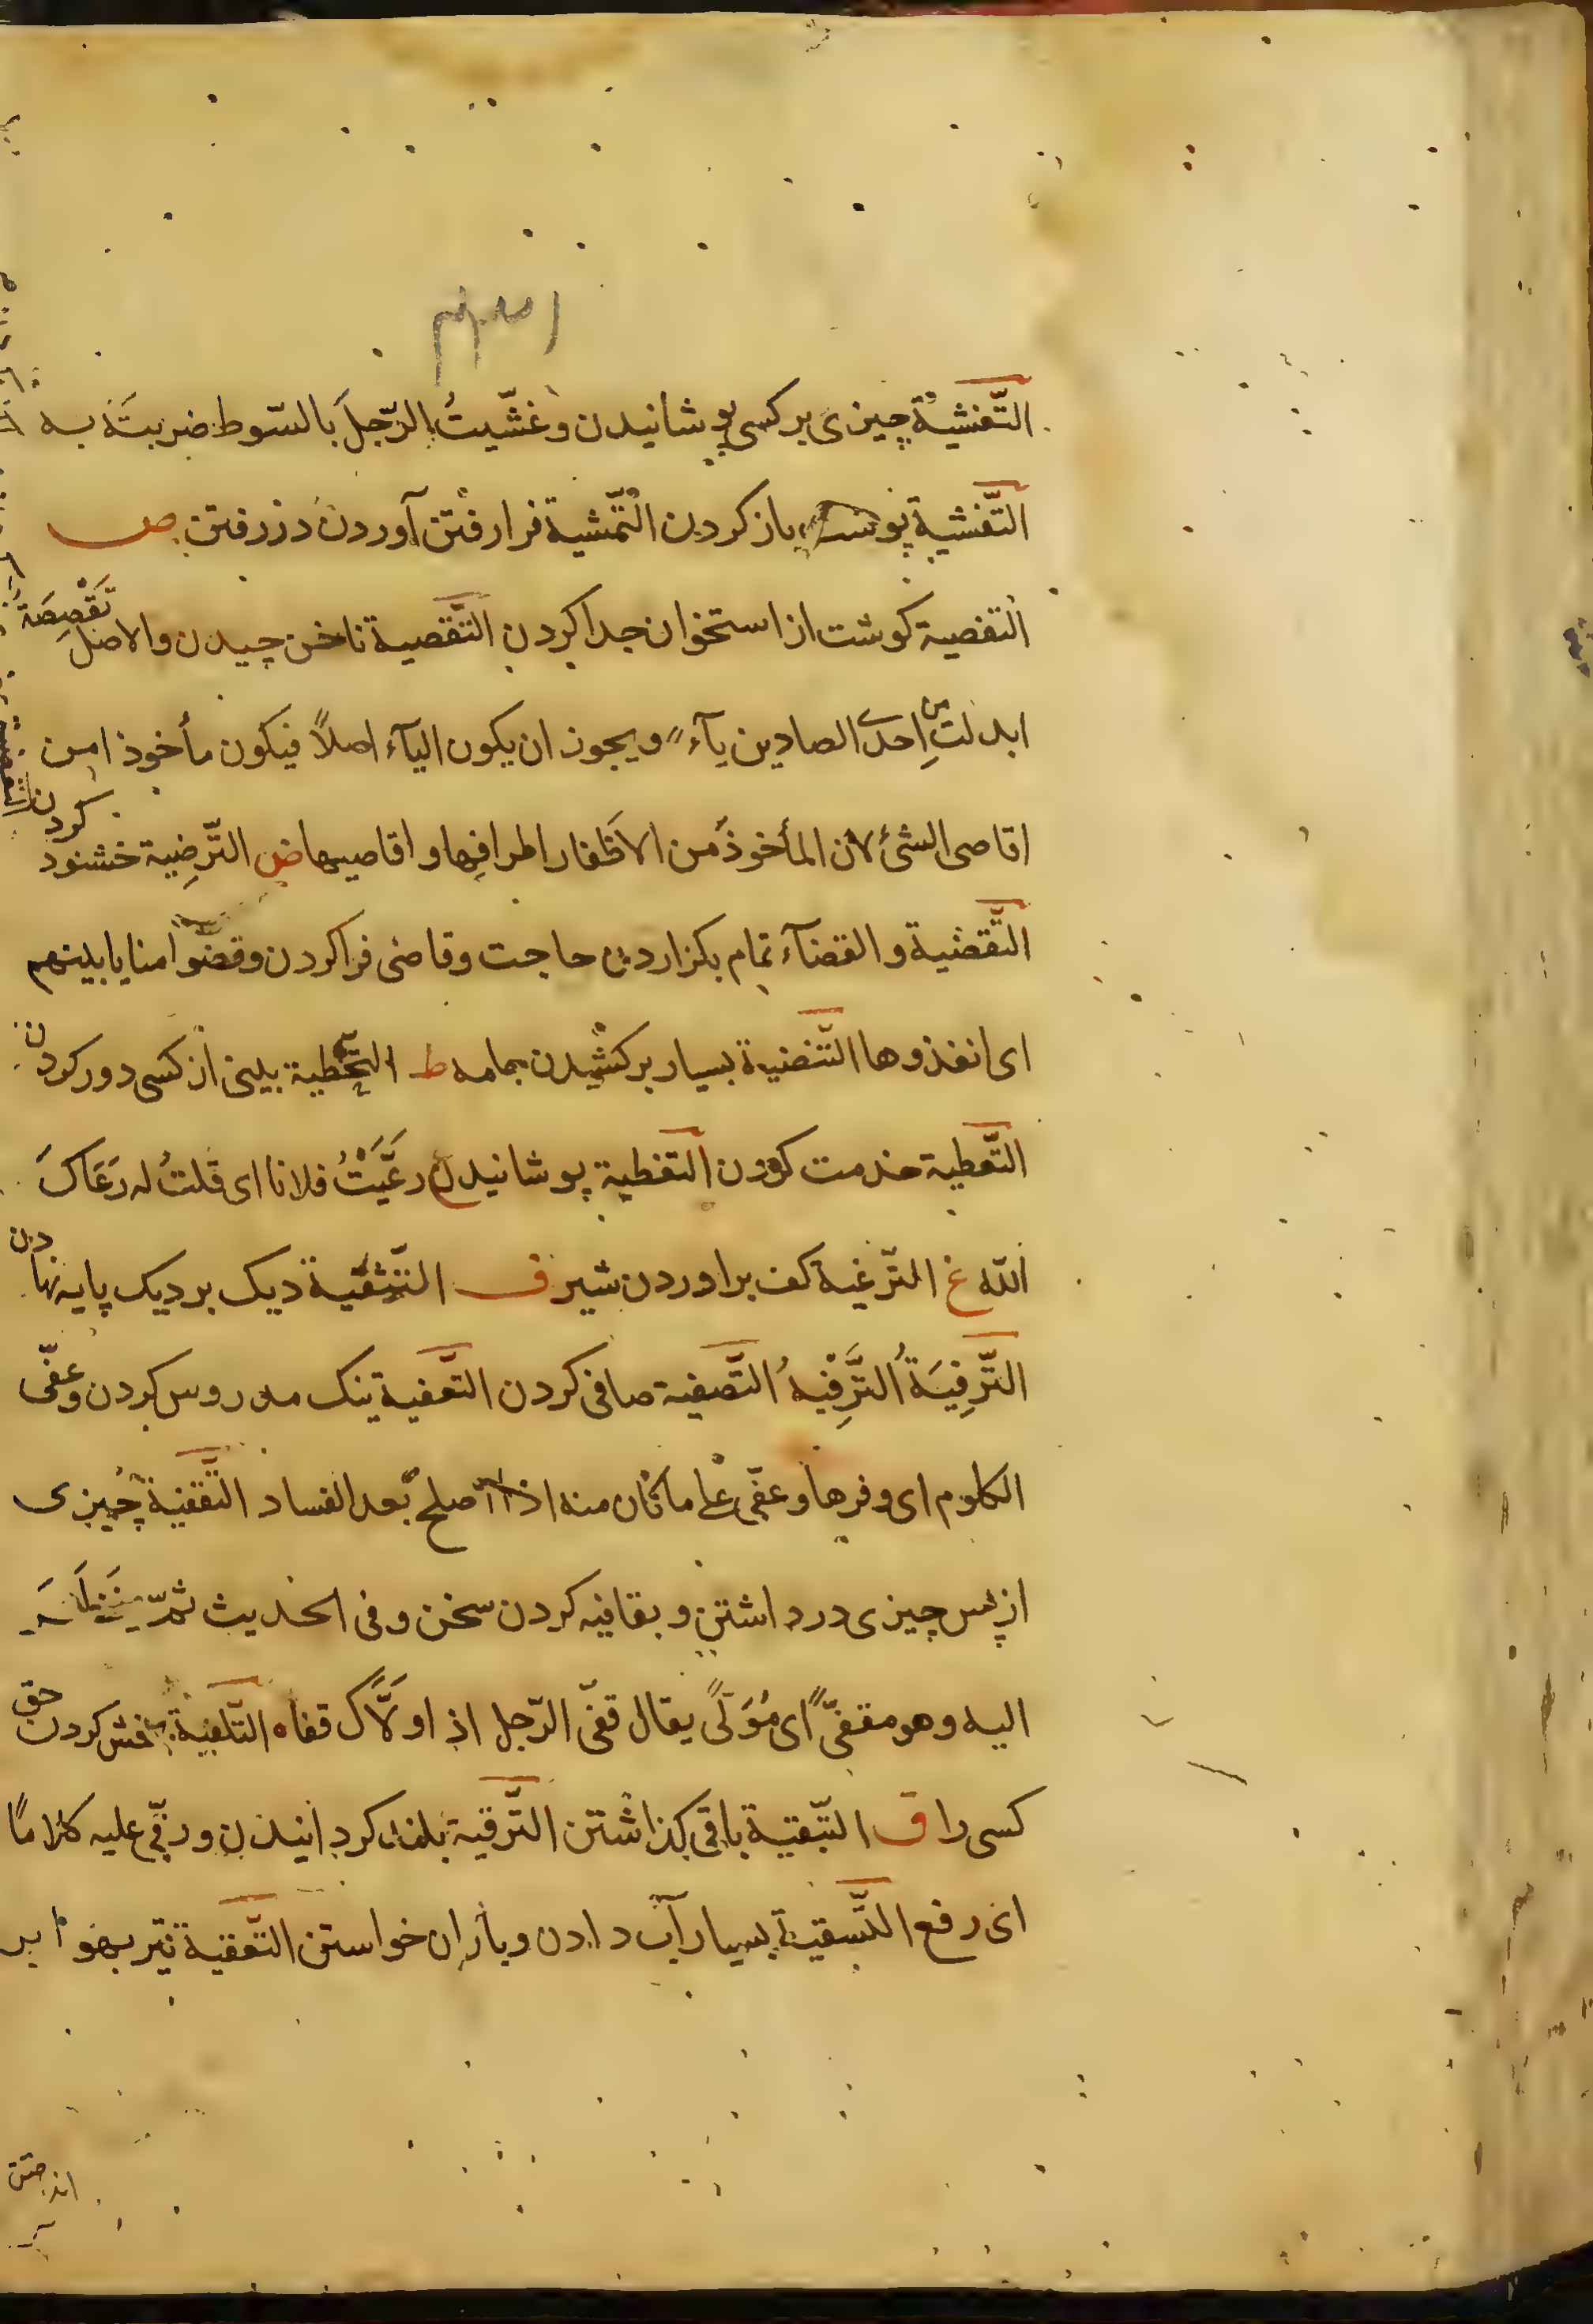 التّغشیة چیزی بر کسی پوشانیدن و غشّیتُ الرّجلَ بالسّوط ضربتَه به
التّفشیة پوست باز کردن التّمشیة فرا رفتن آوردن در رفتن ص
التفصیة کوشت از استخوان جدا کردن التّقصیة ناخن چیدن والاصل تَقْصِصَة
ابدلت من اِحدی الصادین یآءً ویجوز ان یکون الیآء اصلاً فیکون مأخوذا من
اقاصی الشئ لان المأخوذ من الاَظفار اطرافها و اقاصیها ض التّرضِیة خشنود کردن
التّقضیة و القضآء تمام بکزاردن حاجت وقاضی فرا کردن وقضّوا منایا بینهم
ای انفذوها التّنضیة بسیار برکشیدن جامه ط التخّطیة بینی از کسی دور کردن
التّعطیة خدمت کردن التّغطیة پوشانیدن ع رعَّیَتُْ فلانا ای قلتُ له رَعَاکَ
الله غ التّرغیة کف براوردن شیر ف التّثفّیة دیک بر دیک پایه نهادن
التّرفِیَةُ التَّرفِیهُ التّصفیة صافی کردن التّعفیة نیک مدروس کردن وعفّی
الکلوم ای وفرها و عفّی علی ما کان منه اذا اصلح بعد الفساد التّقفیة چیزی
از پس چیزی در داشتن و بقافیه کردن سخن و فی الحدیث ثمّ
الیه وهو مقفیّ ای مُوَلّیً یقال قفّی الرّجل اذا ولّاک قفاه التّلفیة کردن حق
کسی را ق التّبقیة باقی کذاشتن التّرقیة بلند کردانیدن و رقّی علیه کلاماً
ای رفع التّسقیة بسیار آب دادن و باران خواستن التّعقیة تیر بهوا بر
اندختن